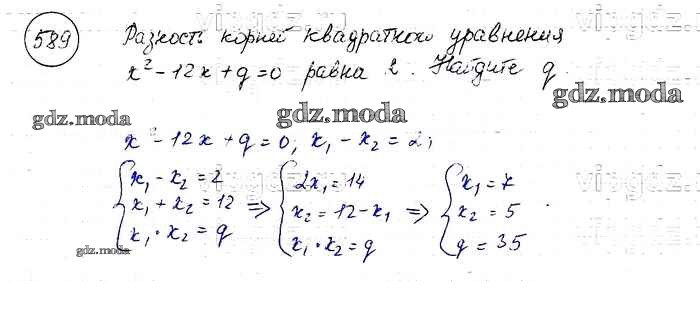 589 Разность корней квадратного уравнения
x² - 12x + q = 0 равна 2. Найдите q
gdz.moda
gdz.moda
x² - 12x + q = 0, x₁ - x₂ = 2;
x₁ - x₂ = 2
x₁ + x₂ = 12
x₁ · x₂ = q
=>
2x₁ = 14
x₂ = 12 - x₁
x₁ · x₂ = q
=>
x₁ = 7
x₂ = 5
q = 35
gdz.moda
gdz.moda